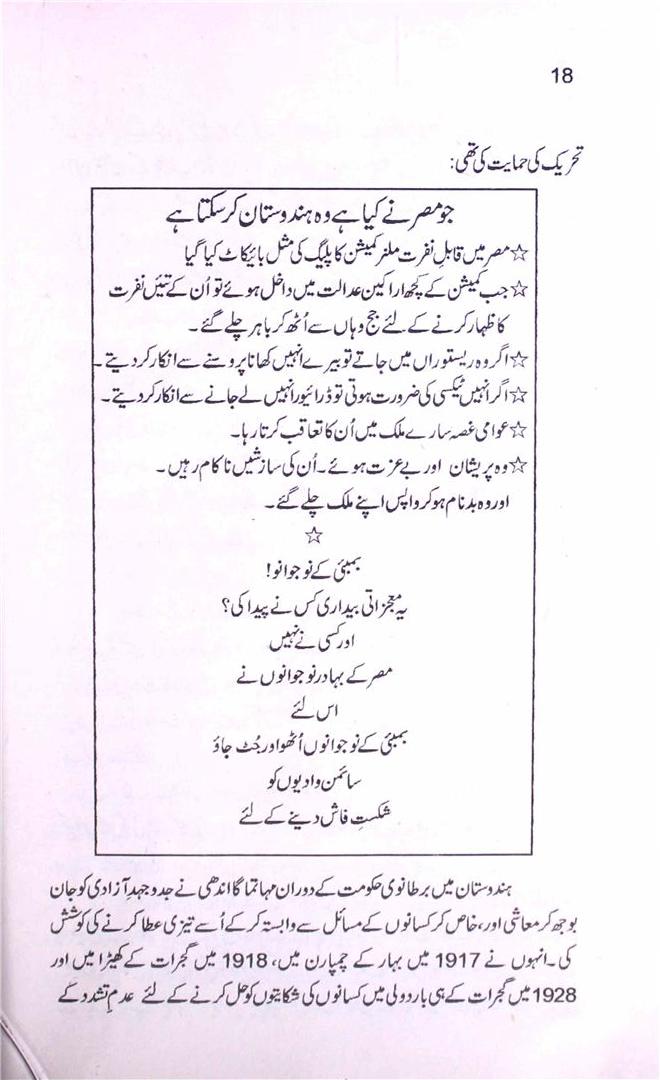 18
تحریک کی حمایت کی تھی:
جو مصر نے کیا ہے وہ ہندوستان کر سکتا ہے
☆ مصر میں قابلِ نفرت ملنر کمیشن کا پلیگ کی مثل بائیکاٹ کیا گیا
☆ جب کمیشن کے کچھ اراکین عدالت میں داخل ہوئے تو اُن کے تئیں نفرت
کا ظہار کرنے کے لئے جج وہاں سے اُٹھ کر باہر چلے گئے۔
☆ اگر وہ ریستوراں میں جاتے تو بیرے انہیں کھانا پروسنے سے انکار کر دیتے۔
☆ اگر انہیں ٹیکسی کی ضرورت ہوتی تو ڈرائیور انہیں لے جانے سے انکار کر دیتے۔
☆ عوامی غصہ سارے ملک میں اُن کا تعاقب کرتا رہا۔
☆ وہ پریشان اور بے عزت ہوئے۔ اُن کی سازشیں ناکام رہیں۔
اور وہ بدنام ہو کر واپس اپنے ملک چلے گئے۔
☆
بمبئی کے نوجوانو!
یہ معجزاتی بیداری کس نے پیدا کی؟
اور کسی نے نہیں
مصر کے بہادر نوجوانوں نے
اس لئے
بمبئی کے نوجوانوں اُٹھو اور جُٹ جاؤ
سائمن وادیوں کو
شکستِ فاش دینے کے لئے
ہندوستان میں برطانوی حکومت کے دوران مہاتما گاندھی نے جدوجہدِ آزادی کو جان
بوجھ کر معاشی اور، خاص کر کسانوں کے مسائل سے وابستہ کر کے اُسے تیزی عطا کرنے کی کوشش
کی۔ انہوں نے 1917 میں بہار کے چمپارن میں، 1918 میں گجرات کے کھیڑا میں اور
1928 میں گجرات کے ہی باردولی میں کسانوں کی شکایتوں کو حل کرنے کے لئے عدمِ تشدد کے